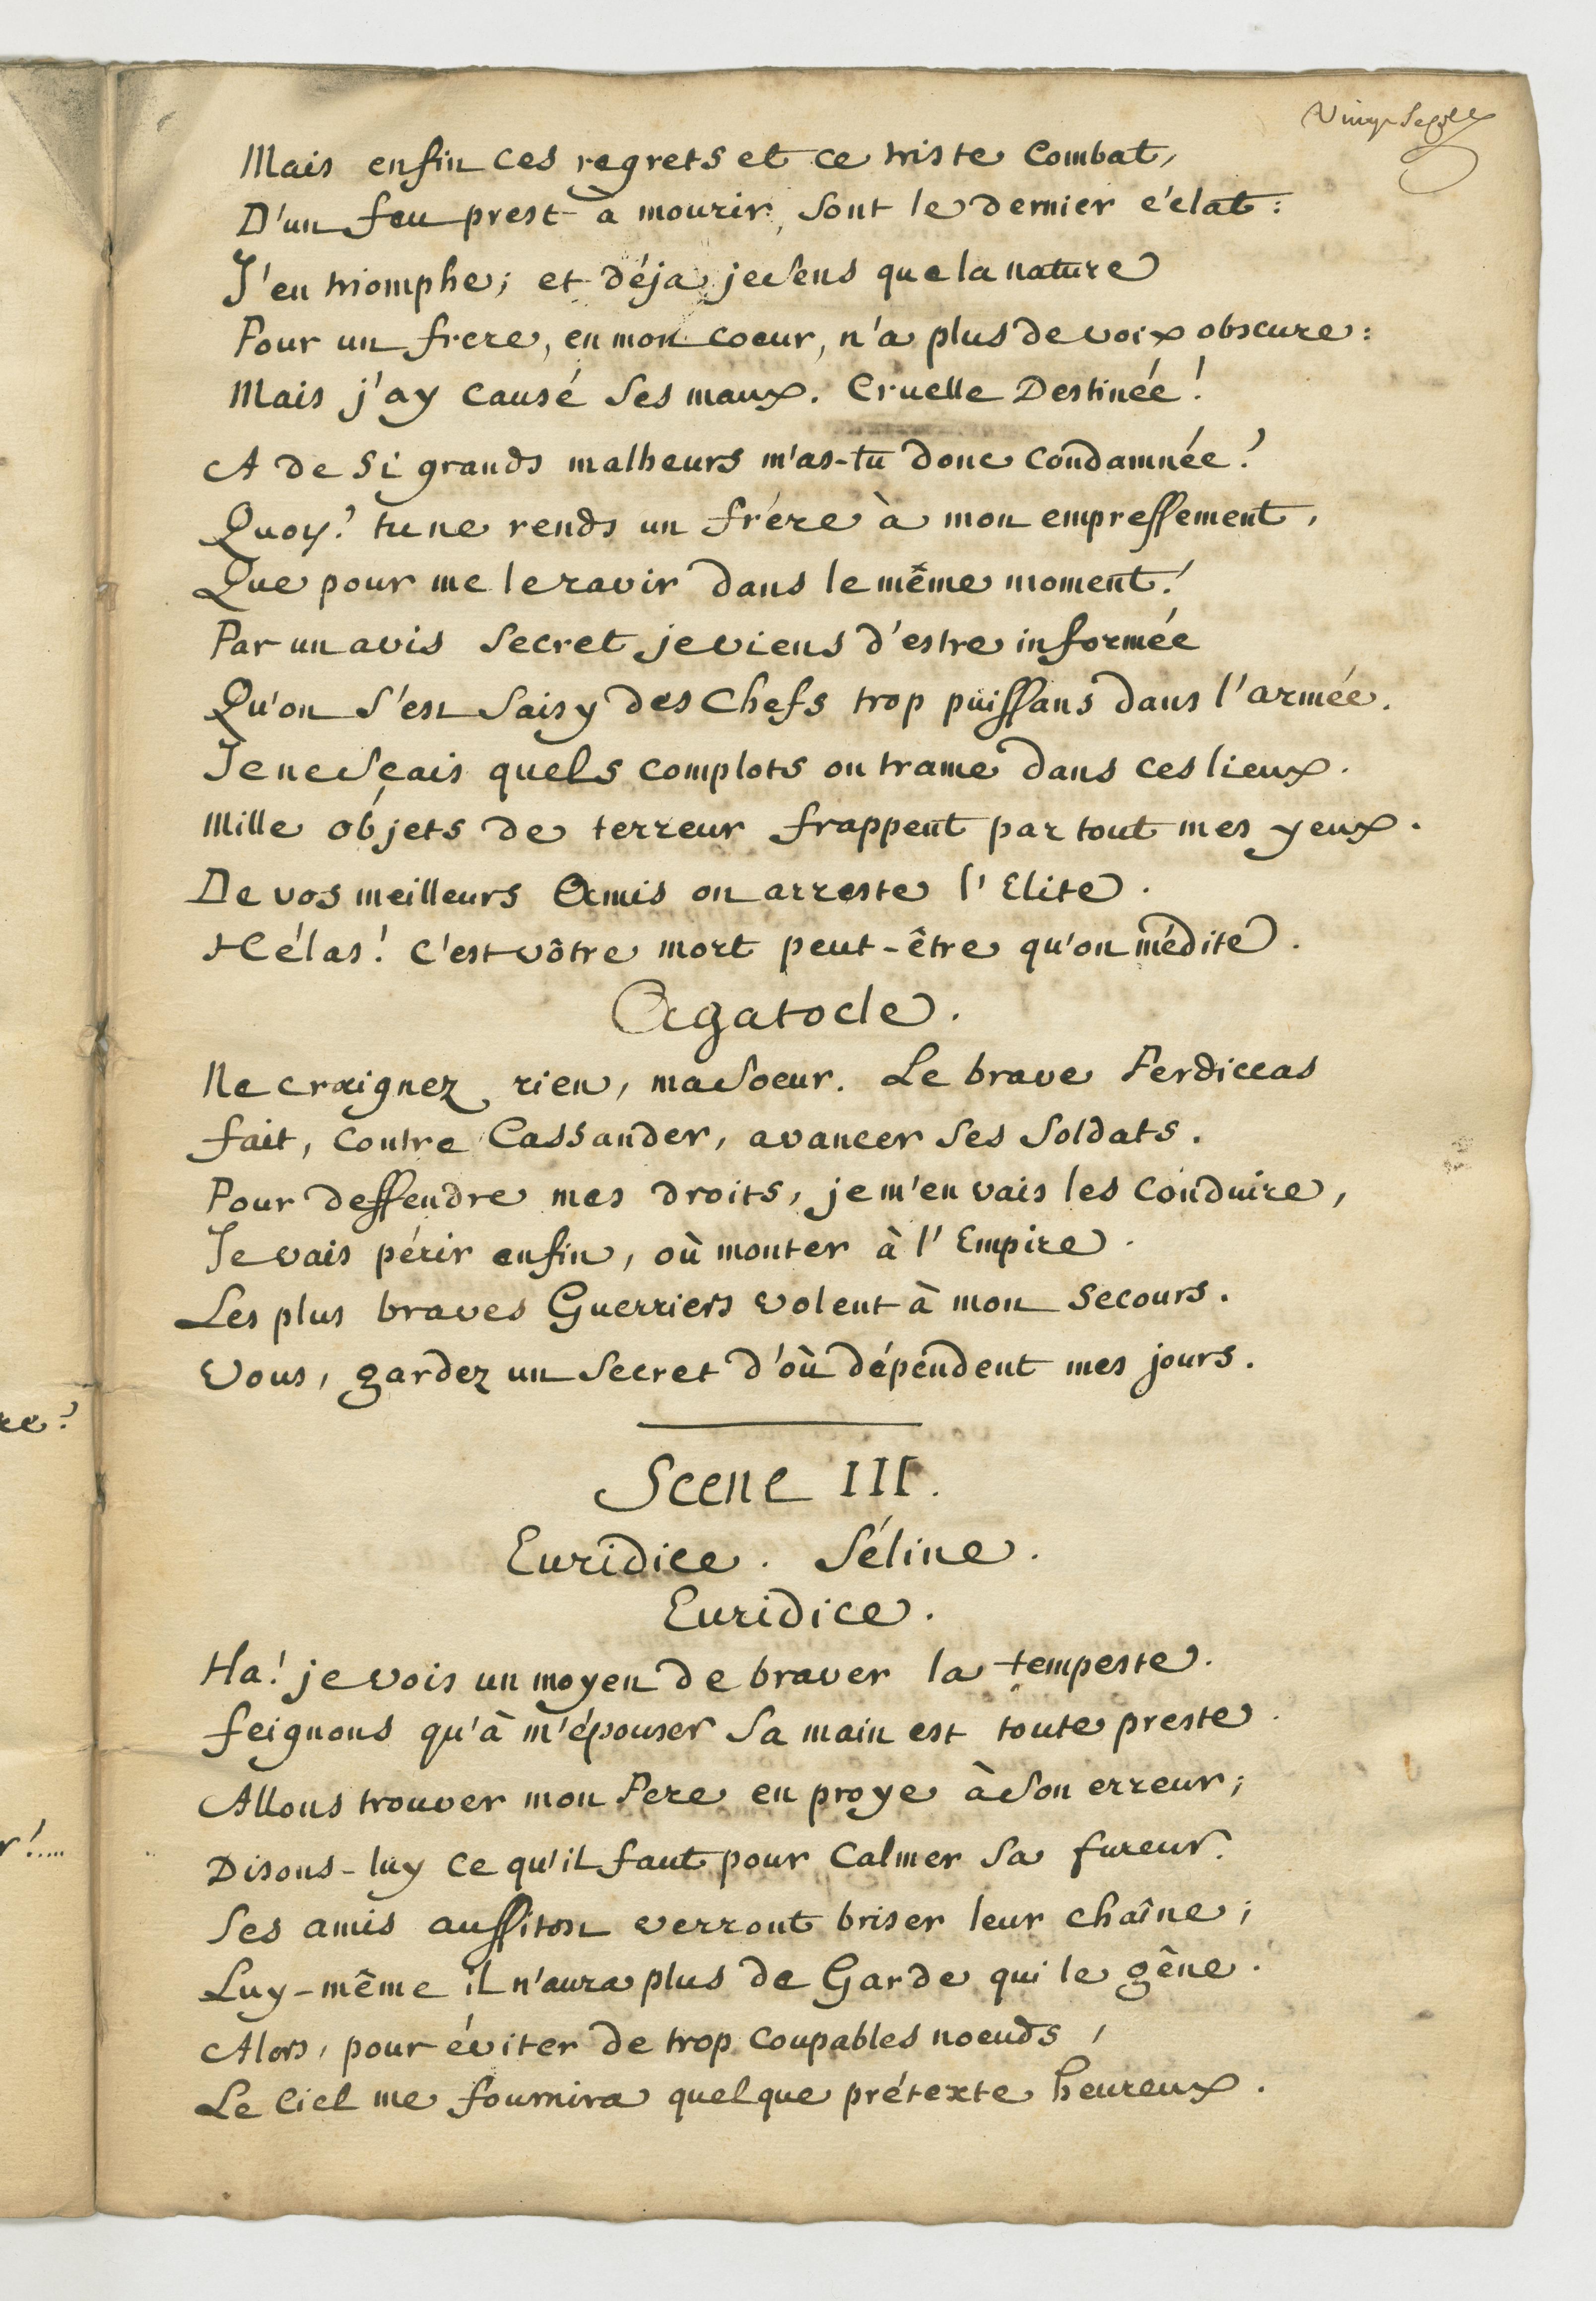 Mais enfin ces regrets et ce triste Combat,
D'un feu prest à mourir, sont le dernier éclat:
J'en triomphe; et déja je sens que la nature
Pour un frere, en mon coeur, n'a plus de voix obscure:
Mais j'ay causé ses maux. Cruelle Destinée!
A de si grands malheurs m'as-tu donc condamnée?
Quoy? tu ne rends un frére à mon empressement,
Que pour me le ravir dans le même moment!
Par un avis secret je viens d'estre informée
Qu'on s'est saisy des Chefs trop puissans dans l'armée.
Je ne sçais quels complots on trame dans ces lieux.
Mille objets de terreur frappent par tout mes yeux.
De vos meilleurs Amis on arreste l'Elite.
Hélas! c'est vôtre mort peut-être qu'on médite.
Agatocle.
Ne craignez rien, ma soeur. Le brave Perdiccas
fait, contre Cassander, avancer ses soldats.
Pour deffendre mes droits, je m'en vais les conduire,
Je vais périr enfin, où monter à l'Empire.
Les plus braves Guerriers volent à mon secours.
Vous, gardez un secret d'où dépendent mes jours.
Scene III.
Euridice. Séline.
Euridice.
Ha! je vois un moyen de braver la tempeste.
feignons qu'à m'épouser sa main est toute preste.
Allons trouver mon Pere en proye à son erreur;
Disons-luy ce qu'il faut pour calmer sa fureur.
Ses amis aussitost verront briser leur chaîne;
Luy-même il n'aura plus de Garde qui le gêne.
Alors, pour éviter de trop coupables noeuds,
Le Ciel me fournira quelque prétexte heureux.